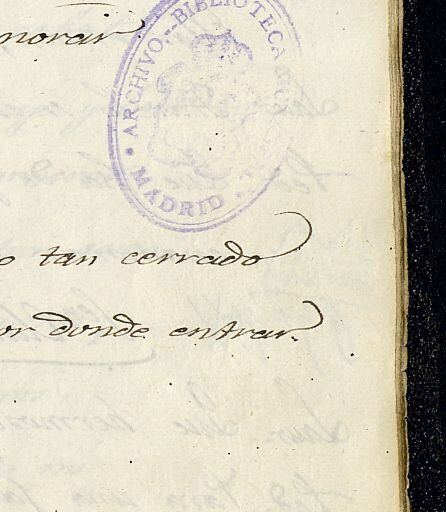 norar
ARCHIVO-BIBLIOTECA
MADRID
o tan cerrado
or donde entrar.